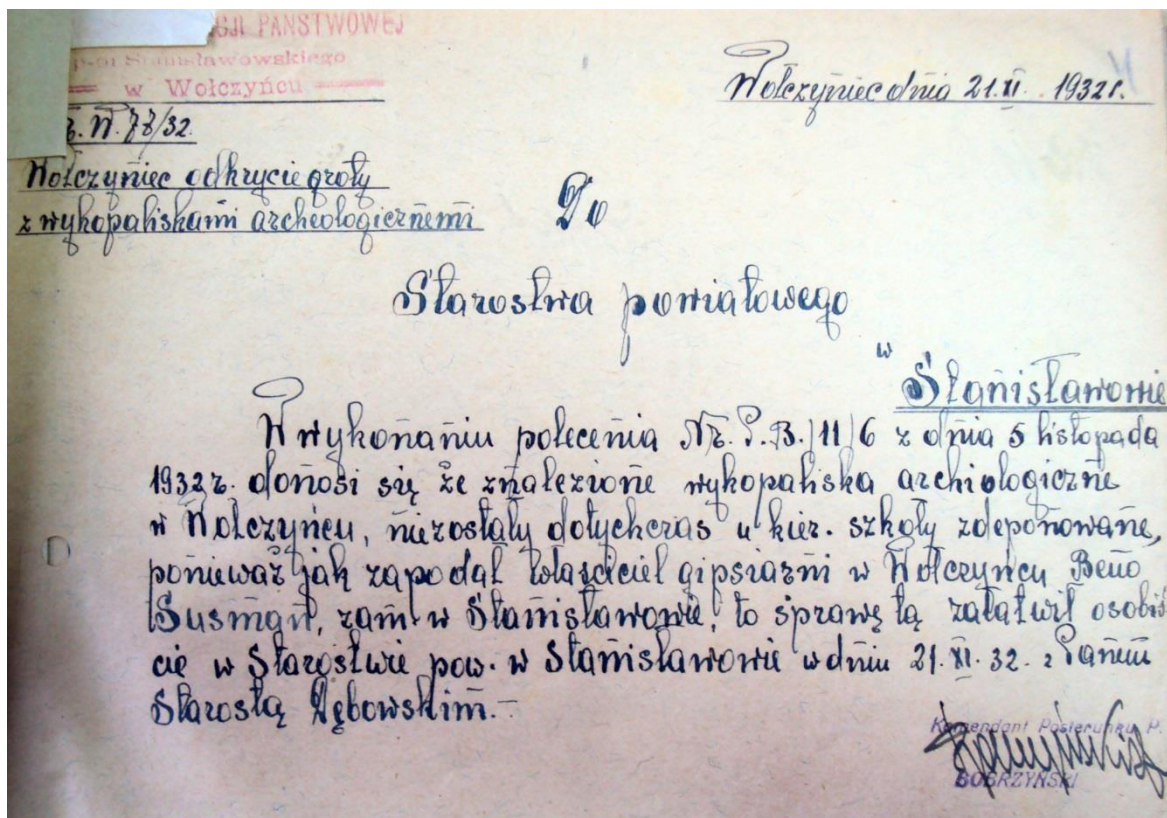 CJI PAŃSTWOWEJ
Stanisławowskiego
w Wołczyńcu
Wołczyniec dnia 21.XI. 1932r.
77/32.
Wołczyniec odkrycie groty
z wykopaliskami archeologicznemi
Do
Starostwa powiatowego
w
Stanisławowie
W wykonaniu polecenia Nr. P.B./11/6 z dnia 5 listopada
1932r. donosi się że znalezione wykopaliska archiologiczne
w Wołczyńcu, niezostały dotychczas u kier. szkoły zdeponowane,
ponieważ jak zapodał właściciel gipsiarni w Wołczyńcu Beno
Susman, zam. w Stanisławowie, to sprawę tą załatwił osobiś
cie w Starostwie pow. w Stanisławowie w dniu 21.XI.32. z Panem
Starostą Dębowskim.-
Komendant Posterunku P.
BOBRZYŃSKI